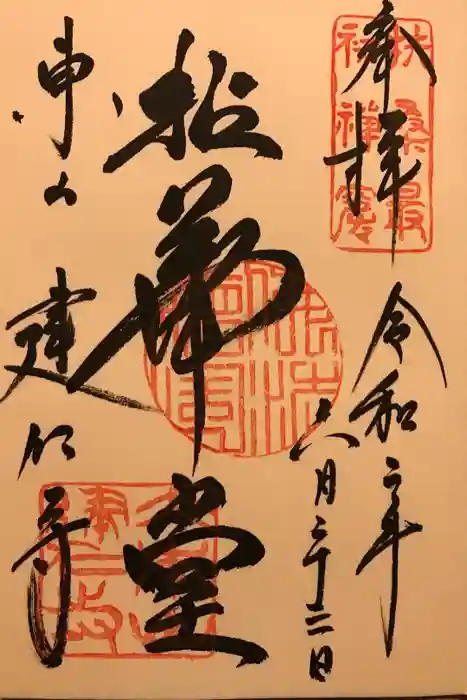 奉拝
扶桑最
初禪窟
令和二年
六月二十二日
拈華堂
東山
建仁寺